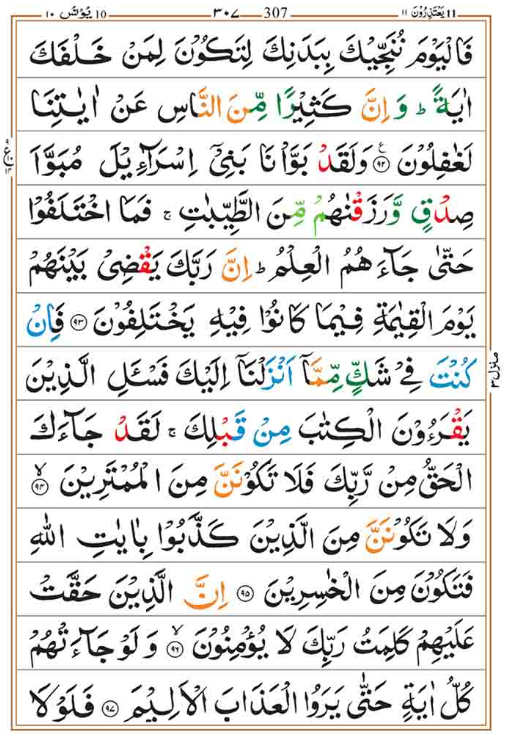 يعتذرون ١١ ٣٠٧ 307 يونس ١٠
فَالْيَوْمَ نُنَجِّيْكَ بِبَدَنِكَ لِتَكُوْنَ لِمَنْ خَلْفَكَ
اٰيَةً ؕ وَاِنَّ كَثِيْرًا مِّنَ النَّاسِ عَنْ اٰيٰتِنَا
لَغٰفِلُوْنَ ﴿٩٢﴾ وَلَقَدْ بَوَّاْنَا بَنِيْۤ اِسْرَآءِيْلَ مُبَوَّاَ
صِدْقٍ وَّرَزَقْنٰهُمْ مِّنَ الطَّيِّبٰتِ ۚ فَمَا اخْتَلَفُوْا
حَتّٰى جَآءَهُمُ الْعِلْمُ ؕ اِنَّ رَبَّكَ يَقْضِيْ بَيْنَهُمْ
يَوْمَ الْقِيٰمَةِ فِيْمَا كَانُوْا فِيْهِ يَخْتَلِفُوْنَ ﴿٩٣﴾ فَاِنْ
كُنْتَ فِيْ شَكٍّ مِّمَّاۤ اَنْزَلْنَاۤ اِلَيْكَ فَسْـَٔلِ الَّذِيْنَ
يَقْرَءُوْنَ الْكِتٰبَ مِنْ قَبْلِكَ ۚ لَقَدْ جَآءَكَ
الْحَقُّ مِنْ رَّبِّكَ فَلَا تَكُوْنَنَّ مِنَ الْمُمْتَرِيْنَ ۙ﴿٩٤﴾
وَلَا تَكُوْنَنَّ مِنَ الَّذِيْنَ كَذَّبُوْا بِاٰيٰتِ اللّٰهِ
فَتَكُوْنَ مِنَ الْخٰسِرِيْنَ ﴿٩٥﴾ اِنَّ الَّذِيْنَ حَقَّتْ
عَلَيْهِمْ كَلِمَتُ رَبِّكَ لَا يُؤْمِنُوْنَ ۙ﴿٩٦﴾ وَلَوْ جَآءَتْهُمْ
كُلُّ اٰيَةٍ حَتّٰى يَرَوُا الْعَذَابَ الْاَلِيْمَ ﴿٩٧﴾ فَلَوْلَا